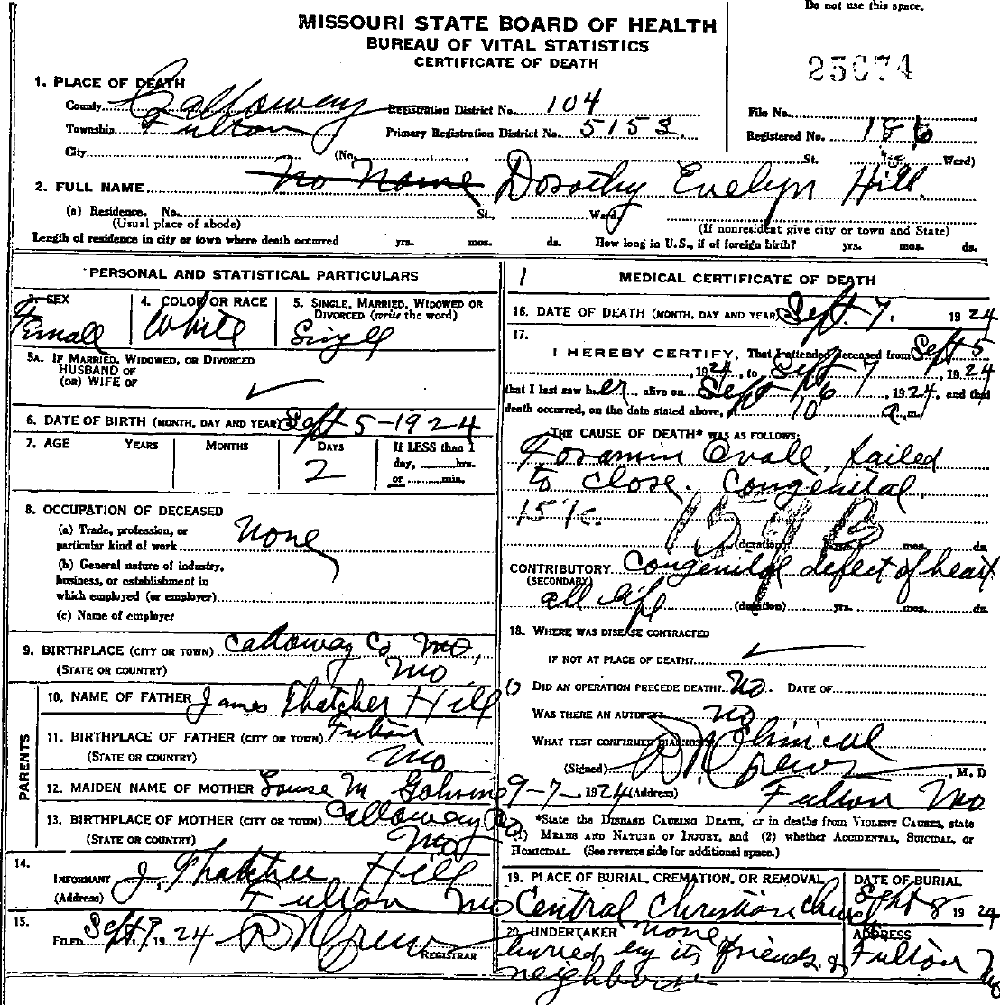 Do not use this space.
MISSOURI STATE BOARD OF HEALTH
BUREAU OF VITAL STATISTICS
CERTIFICATE OF DEATH
25674
1. PLACE OF DEATH
County Calloway Registration District No. 104 File No.
Township Fulton Primary Registration District No. 5153 Registered No. 186
City (No. St. Ward)
2. FULL NAME No Name Dorothy Evelyn Hill
(a) Residence. No. St. Ward,
(Usual place of abode) (If nonresident give city or town and State)
Length of residence in city or town where death occurred yrs. mos. ds. How long in U.S., if of foreign birth? yrs. mos. ds.
PERSONAL AND STATISTICAL PARTICULARS
3. SEX 4. COLOR OR RACE 5. SINGLE, MARRIED, WIDOWED OR
DIVORCED (write the word)
Femall White Singell
5A. IF MARRIED, WIDOWED, OR DIVORCED
HUSBAND OF
(OR) WIFE OF
6. DATE OF BIRTH (MONTH, DAY AND YEAR) Sept 5-1924
7. AGE YEARS MONTHS DAYS If LESS than 1
day, hrs.
2 or min.
8. OCCUPATION OF DECEASED
(a) Trade, profession, or
particular kind of work None
(b) General nature of industry,
business, or establishment in
which employed (or employer)
(c) Name of employer
9. BIRTHPLACE (CITY OR TOWN) Calloway Co Mo,
(STATE OR COUNTRY) Mo
PARENTS
10. NAME OF FATHER James Thatcher Hill
11. BIRTHPLACE OF FATHER (CITY OR TOWN) Fulton
(STATE OR COUNTRY) Mo
12. MAIDEN NAME OF MOTHER Louise M
13. BIRTHPLACE OF MOTHER (CITY OR TOWN) Calloway Co
(STATE OR COUNTRY) Mo
14.
INFORMANT J. Thatcher Hill
(Address) Fulton Mo
15.
FILED Sept 9, 1924 R N Crews
REGISTRAR
MEDICAL CERTIFICATE OF DEATH
16. DATE OF DEATH (MONTH, DAY AND YEAR) Sept. 7. 1924
17.
I HEREBY CERTIFY, That I attended deceased from Sept 5
1924, to Sept 7, 1924
that I last saw her alive on Sept 6, 1924, and that
death occurred, on the date stated above, 10 a.m.
THE CAUSE OF DEATH* WAS AS FOLLOWS:
Foramin Ovall, failed
to close. Congenital,
159B
(duration) yrs. mos. ds.
CONTRIBUTORY Congenital defect of heart
(SECONDARY) all life (duration) yrs. mos. ds.
18. WHERE WAS DISEASE CONTRACTED
IF NOT AT PLACE OF DEATH?
DID AN OPERATION PRECEDE DEATH? No. DATE OF
WAS THERE AN AUTOPSY? No
WHAT TEST CONFIRMED DIAGNOSIS? Clinical
(Signed) R N Crews, M. D
9-7-1924 (Address) Fulton Mo
*State the DISEASE CAUSING DEATH, or in deaths from VIOLENT CAUSES, state
(1) MEANS AND NATURE OF INJURY, and (2) whether ACCIDENTAL, SUICIDAL, or
HOMICIDAL. (See reverse side for additional space.)
19. PLACE OF BURIAL, CREMATION, OR REMOVAL DATE OF BURIAL
Central Christian Church Sept 8 1924
20. UNDERTAKER none ADDRESS
buried by its friends & Fulton Mo
neighbors